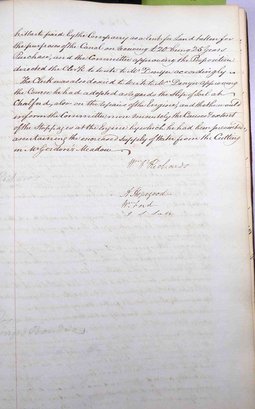 hitherto paid by the Company as a rent for Land taken for
the purposes of the Canal on securing £20 being 25 Years
Purchase, and the Committee approving the Proposition
directed the Clerk to write to Mr Denyer accordingly
The Clerk was also desired to write to Mr Denyer approving
the Course he had adopted as regards the Slip of that at
Chalford, also on the repairs of the Engine, and that he would
inform the Committee more minutely the Cause & extent
of the Stoppages at the Engine by which he had been prevented
ascertaining the increased Supply of Water from the Cutting
in Mr Gordon's Meadow
Wm Richards
A Hopgood
W. Ford